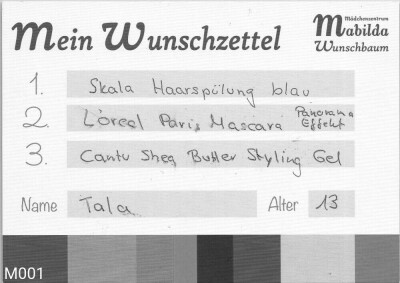 Mein Wunschzettel
Mädchenzentrum
Mabilda
Wunschbaum
1. Skala Haarspülung blau
2. L'óreal Paris Mascara Panorama Effekt
3. Cantu Shea Butter Styling Gel
Name Tala Alter 13
M001